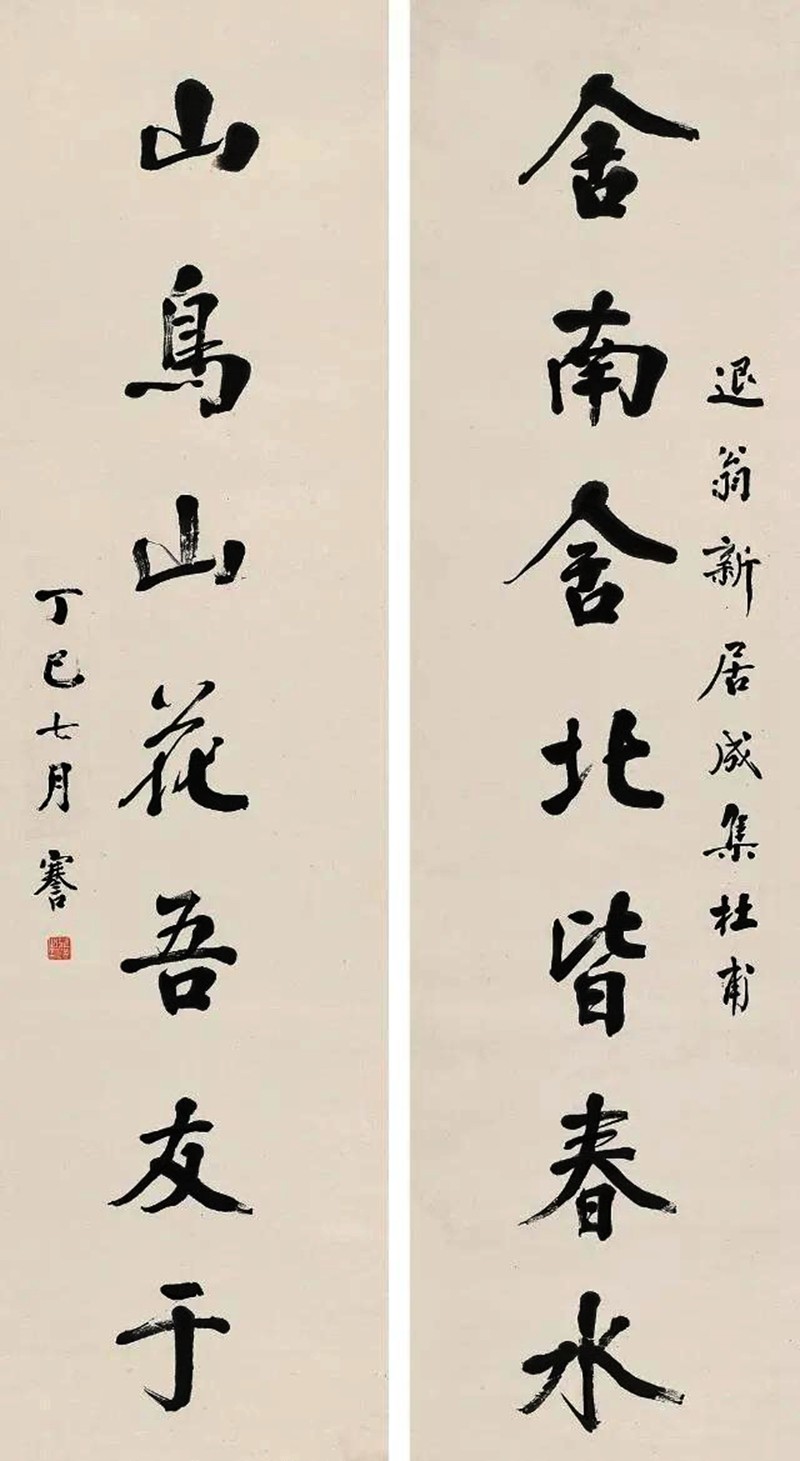 退翁新居成集杜甫
舍南舍北皆春水
山鳥山花吾友于
丁巳七月謇